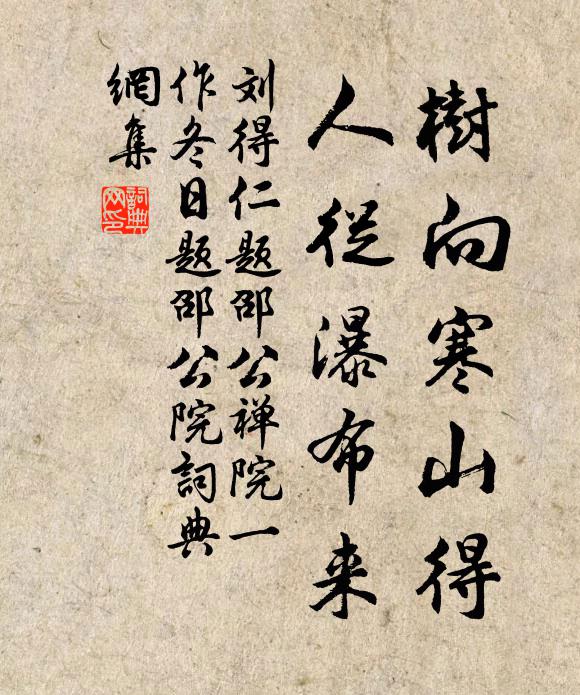 樹向寒山得
人從瀑布来
刘得仁题邵公禅院一
作冬日题邵公院詞典
網集
詞典
网印